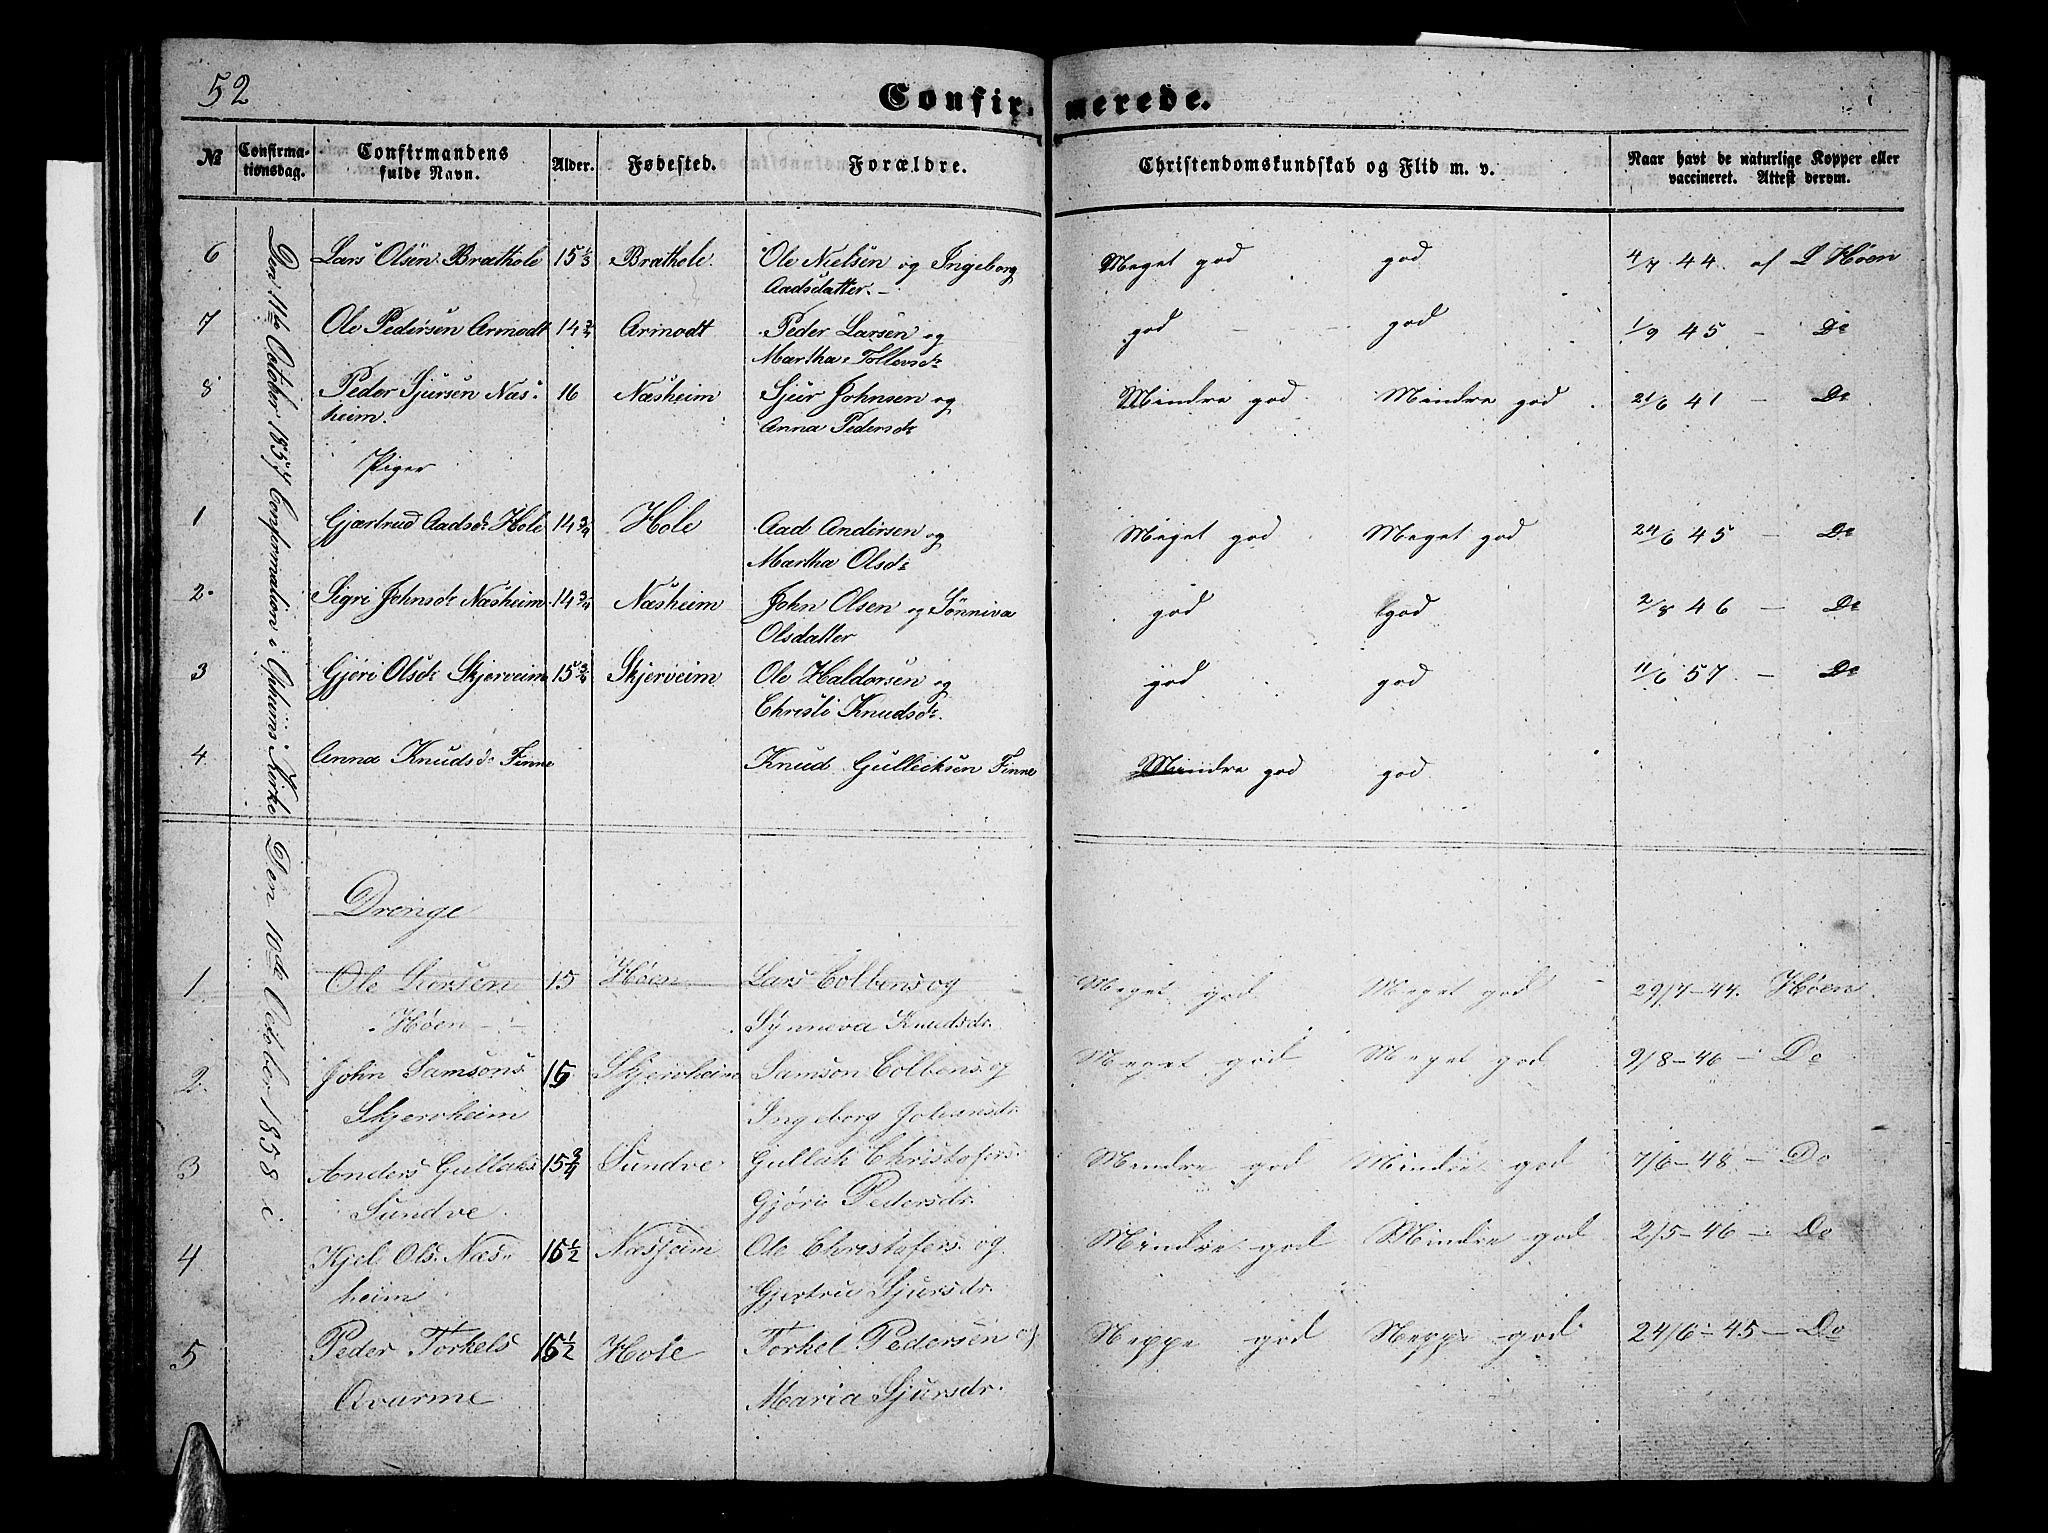 52
Confirmerede.
№ Confirmationsdag. Confirmandens fulde Navn. Alder. Fødested. Forældre. Christendomskundskab og Flid m. v. Naar havt de naturlige Kopper eller vaccineret. Attest derom.
Den 11te October 1857 Confirmation i Opheims Kirke
6 Lars Olsen Brækhole 15 1/3 Brækhole. Ole Nielsen og Ingeborg Meget god god 4/7 44. af L Høen
Aadsdatter.
7 Ole Pedersen Armodt 14 3/4 Armodt Peder Larsen og god god 1/9 45 - Do
Martha Tollevsdr
8 Peder Sjursen Næs- 16 Næsheim Sjur Johnsen og Mindre god Mindre god 21/6 41 - Do
heim. Anna Pedersdr
Piger
1 Gjærtrud Aadsdr Hole 14 3/4 Hole Aad Andersen og Meget god Meget god 24/6 45 - Do
Martha Olsdr
2. Sigri Johnsdr Næsheim 14 3/4 Næsheim John Olsen og Sønniva god god 2/8 46 - Do
Olsdatter
3 Gjøri Olsdr Skjerveim 15 3/4 Skjerveim Ole Haldorsen og god god 11/6 57 - Do
Christi Knudsdr.
4 Anna Knudsdr Finne Knud Gulleiksen Finne Mindre god god
Den 10de October 1858 i
Drenge
1 Ole Larsen 15 Høen Lars Colbens og Meget god Meget god 29/7-44. Høen
Høen Synneva Knudsdr.
2 John Samsons 15 Skjervheim Samson Colbens og Meget god Meget god 9/8-46 - Do
Skjervheim Ingeborg Johansdr.
3 Anders Gullaks 15 3/4 Sundve Gullak Christofers. Mindre god Mindre god 7/6-48 - Do
Sundve. Gjøri Pedersdr.
4 Kjel Ols. Næs- 15 1/2 Næsheim Ole Christofers. og Mindre god Mindre god 2/5-46 - Do
heim Gjertru Sjursdr.
5 Peder Torkels 15 1/2 Hole Torkel Pedersen og Neppe god Neppe god 24/6-45 - Do
Qvarme Maria Sjursdr.